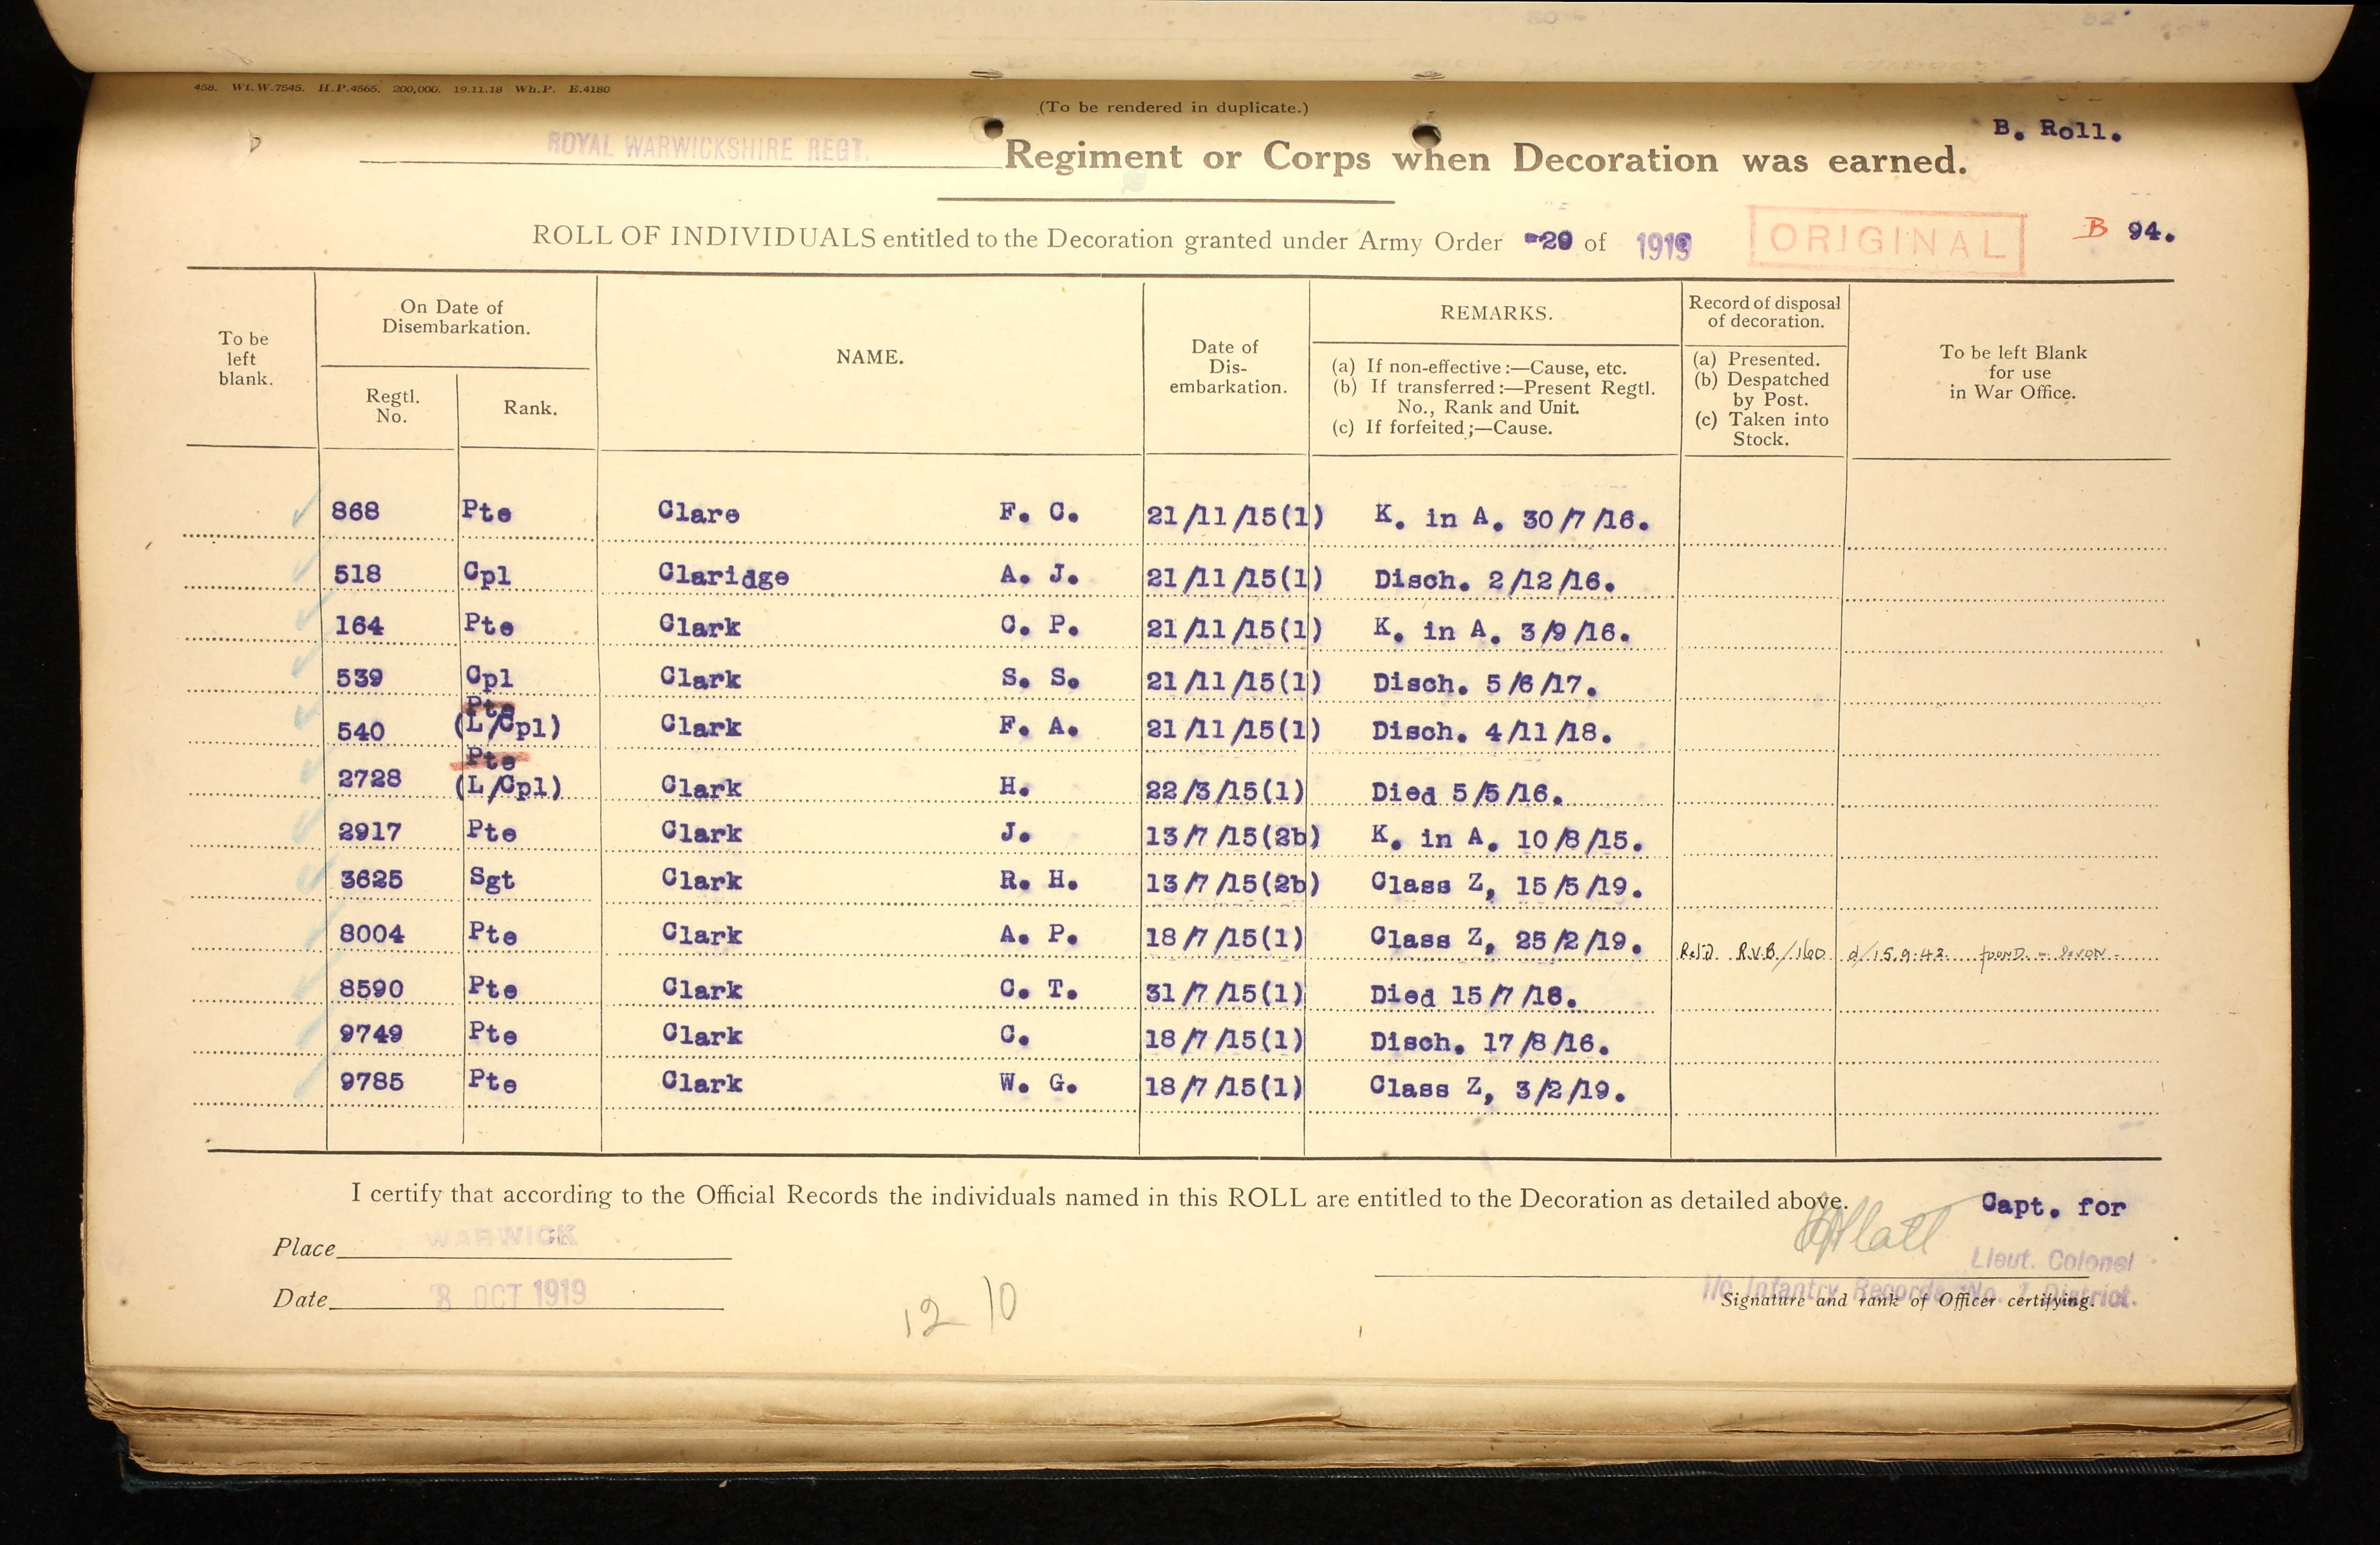 458. Wt. W.7545. H.P.4565. 200,000. 19.11.18 Wh.P. E.4180
(To be rendered in duplicate.)
B. Roll.
ROYAL WARWICKSHIRE REGT. Regiment or Corps when Decoration was earned.
ROLL OF INDIVIDUALS entitled to the Decoration granted under Army Order 20 of 1919 ORIGINAL B 94.
To be left blank.
On Date of Disembarkation.
Regtl. No.
Rank.
NAME.
Date of Dis-embarkation.
REMARKS.
(a) If non-effective:—Cause, etc.
(b) If transferred:—Present Regtl. No., Rank and Unit.
(c) If forfeited;—Cause.
Record of disposal of decoration.
(a) Presented.
(b) Despatched by Post.
(c) Taken into Stock.
To be left Blank for use in War Office.
868 Pte Clare F. C. 21/11/15(1) K. in A. 30/7/16.
518 Cpl Claridge A. J. 21/11/15(1) Disch. 2/12/16.
164 Pte Clark C. P. 21/11/15(1) K. in A. 3/9/16.
539 Cpl Clark S. S. 21/11/15(1) Disch. 5/6/17.
540 Pte (L/Cpl) Clark F. A. 21/11/15(1) Disch. 4/11/18.
2728 Pte (L/Cpl) Clark H. 22/3/15(1) Died 5/5/16.
2917 Pte Clark J. 13/7/15(2b) K. in A. 10/8/15.
3625 Sgt Clark R. H. 13/7/15(2b) Class Z, 15/5/19.
8004 Pte Clark A. P. 18/7/15(1) Class Z, 25/2/19. R.V.B./160 d/15.9.42. found in Devon
8590 Pte Clark C. T. 31/7/15(1) Died 15/7/16.
9749 Pte Clark C. 18/7/15(1) Disch. 17/8/16.
9785 Pte Clark W. G. 18/7/15(1) Class Z, 3/2/19.
I certify that according to the Official Records the individuals named in this ROLL are entitled to the Decoration as detailed above.
Capt. for
Place WARWICK
Lieut. Colonel
Date 8 OCT 1919
I/c Infantry Records No. 7 District.
Signature and rank of Officer certifying.
12 10